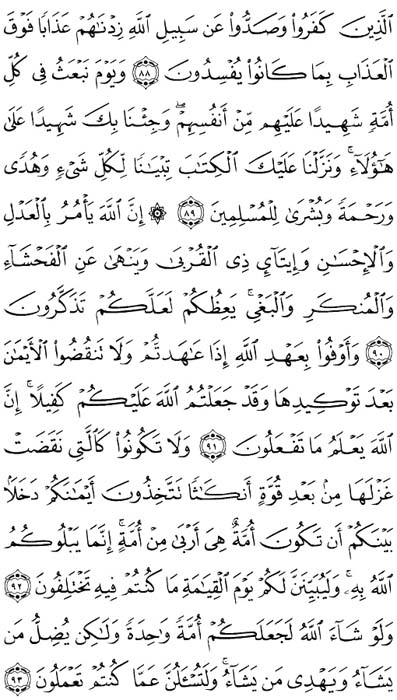 ٱلَّذِينَ كَفَرُوا۟ وَصَدُّوا۟ عَن سَبِيلِ ٱللَّهِ زِدْنَـٰهُمْ عَذَابًا فَوْقَ
ٱلْعَذَابِ بِمَا كَانُوا۟ يُفْسِدُونَ ﴿٨٨﴾ وَيَوْمَ نَبْعَثُ فِى كُلِّ
أُمَّةٍ شَهِيدًا عَلَيْهِم مِّنْ أَنفُسِهِمْ ۖ وَجِئْنَا بِكَ شَهِيدًا عَلَىٰ
هَـٰٓؤُلَآءِ ۚ وَنَزَّلْنَا عَلَيْكَ ٱلْكِتَـٰبَ تِبْيَـٰنًا لِّكُلِّ شَىْءٍ وَهُدًى
وَرَحْمَةً وَبُشْرَىٰ لِلْمُسْلِمِينَ ﴿٨٩﴾ ۞ إِنَّ ٱللَّهَ يَأْمُرُ بِٱلْعَدْلِ
وَٱلْإِحْسَـٰنِ وَإِيتَآئِ ذِى ٱلْقُرْبَىٰ وَيَنْهَىٰ عَنِ ٱلْفَحْشَآءِ
وَٱلْمُنكَرِ وَٱلْبَغْىِ ۚ يَعِظُكُمْ لَعَلَّكُمْ تَذَكَّرُونَ
﴿٩٠﴾ وَأَوْفُوا۟ بِعَهْدِ ٱللَّهِ إِذَا عَـٰهَدتُّمْ وَلَا تَنقُضُوا۟ ٱلْأَيْمَـٰنَ
بَعْدَ تَوْكِيدِهَا وَقَدْ جَعَلْتُمُ ٱللَّهَ عَلَيْكُمْ كَفِيلًا ۚ إِنَّ
ٱللَّهَ يَعْلَمُ مَا تَفْعَلُونَ ﴿٩١﴾ وَلَا تَكُونُوا۟ كَٱلَّتِى نَقَضَتْ
غَزْلَهَا مِنۢ بَعْدِ قُوَّةٍ أَنكَـٰثًا تَتَّخِذُونَ أَيْمَـٰنَكُمْ دَخَلًۢا
بَيْنَكُمْ أَن تَكُونَ أُمَّةٌ هِىَ أَرْبَىٰ مِنْ أُمَّةٍ ۚ إِنَّمَا يَبْلُوكُمُ
ٱللَّهُ بِهِۦ ۚ وَلَيُبَيِّنَنَّ لَكُمْ يَوْمَ ٱلْقِيَـٰمَةِ مَا كُنتُمْ فِيهِ تَخْتَلِفُونَ ﴿٩٢﴾
وَلَوْ شَآءَ ٱللَّهُ لَجَعَلَكُمْ أُمَّةً وَٰحِدَةً وَلَـٰكِن يُضِلُّ مَن
يَشَآءُ وَيَهْدِى مَن يَشَآءُ ۚ وَلَتُسْـَٔلُنَّ عَمَّا كُنتُمْ تَعْمَلُونَ ﴿٩٣﴾